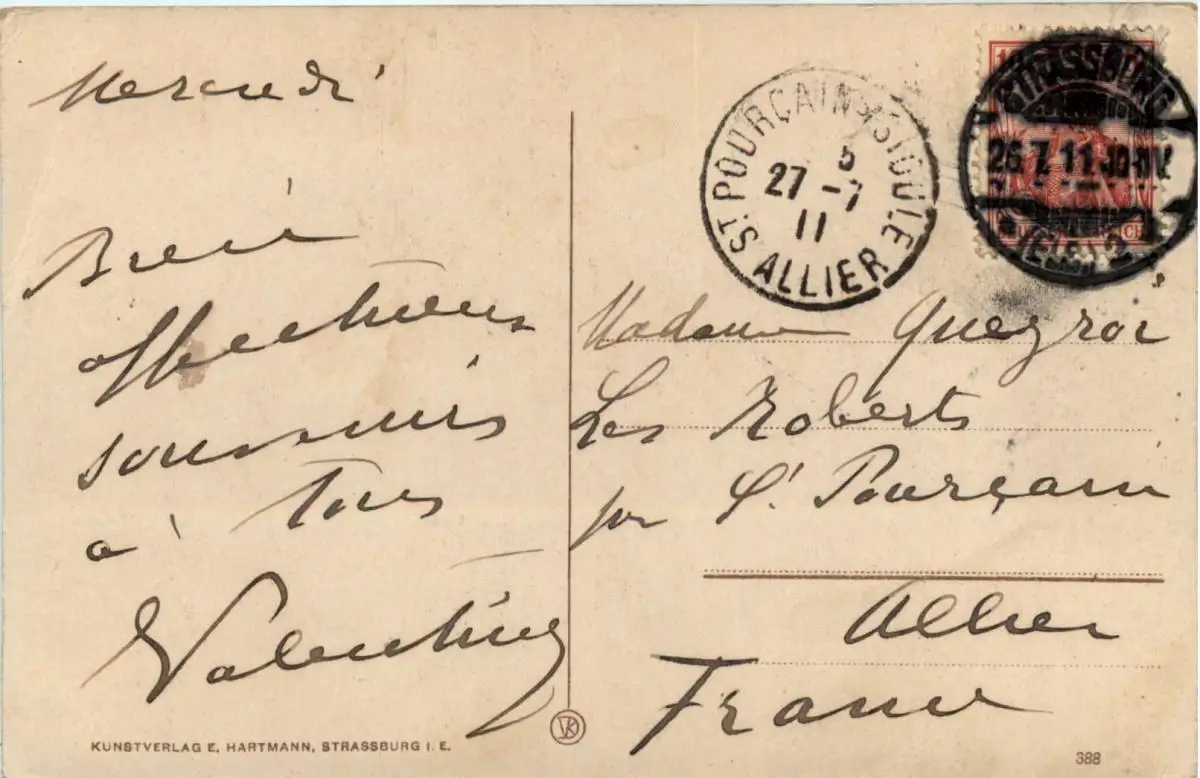 Mercredi
Bien
affectueux
souvenirs
à Tous
Valentine
KUNSTVERLAG E. HARTMANN, STRASSBURG I. E.
ST POURÇAIN S SIOULE
5
27 -7
11
ALLIER
STRASSBURG
26.7.11.10-11V.
(ELS) 2
Madame
Les Roberts
par St. Pourçain
Allier
France
388